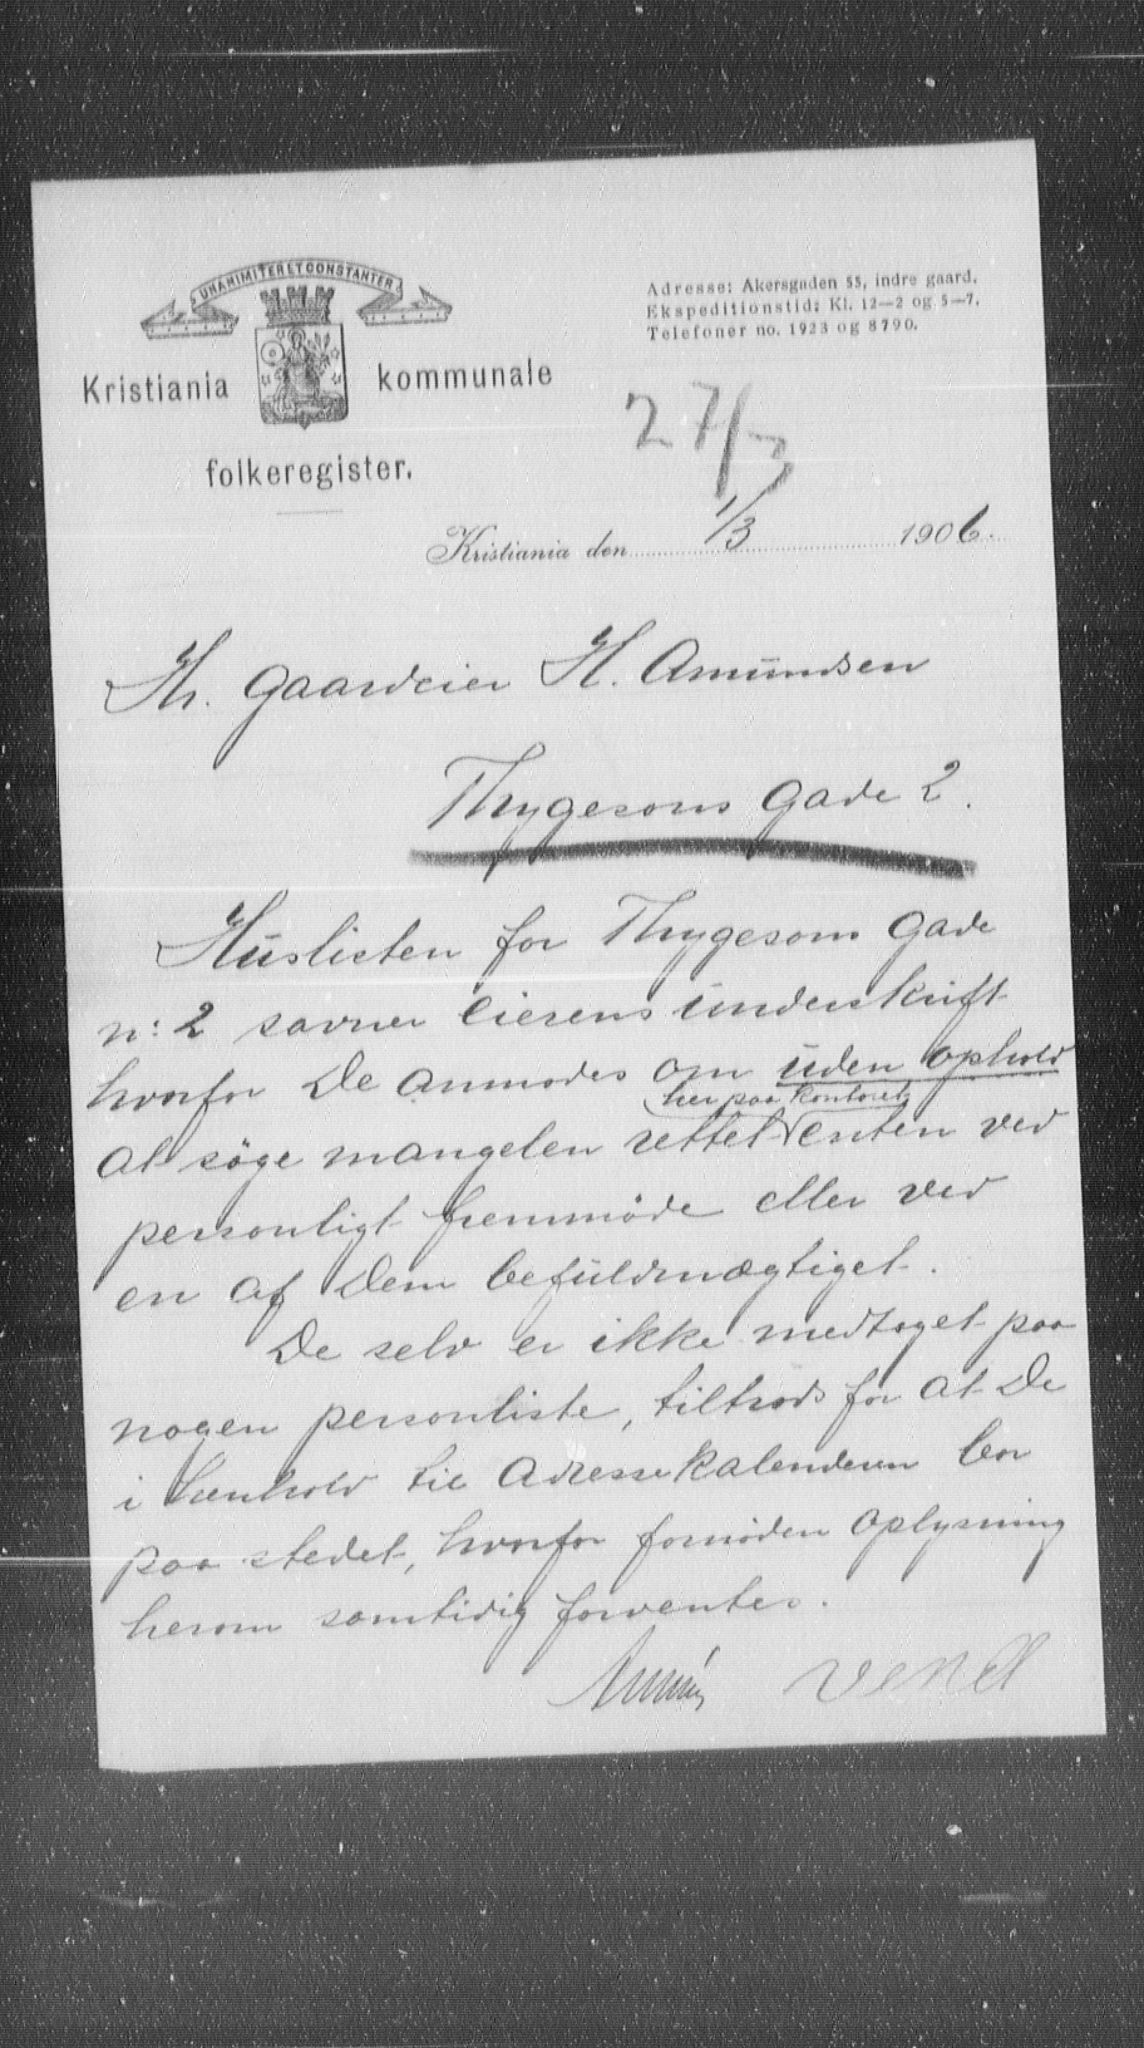 UNANIMITER ET CONSTANTER
Adresse: Akersgaden 55, indre gaard.
Ekspeditionstid: Kl. 12—2 og 5—7.
Telefoner no. 1923 og 8790.
Kristiania kommunale
folkeregister.
27/3
Kristiania den 1/3 1906.
Hr. Gaardeier H. Amundsen
Thygesons Gade 2.
Huslisten for Thygesons Gade
n: 2 savner eierens underskrift
hvorfor De anmodes om uden ophold
her paa kontoret
at søge mangelen rettet enten ved
personligt fremmøde eller ved
en af Dem befuldmægtiget.
De selv er ikke medtaget paa
nogen personliste, tiltrods for at De
i henhold til Adressekalenderen bor
paa stedet, hvorfor fornøden oplysning
herom samtidig forventes.
Vend